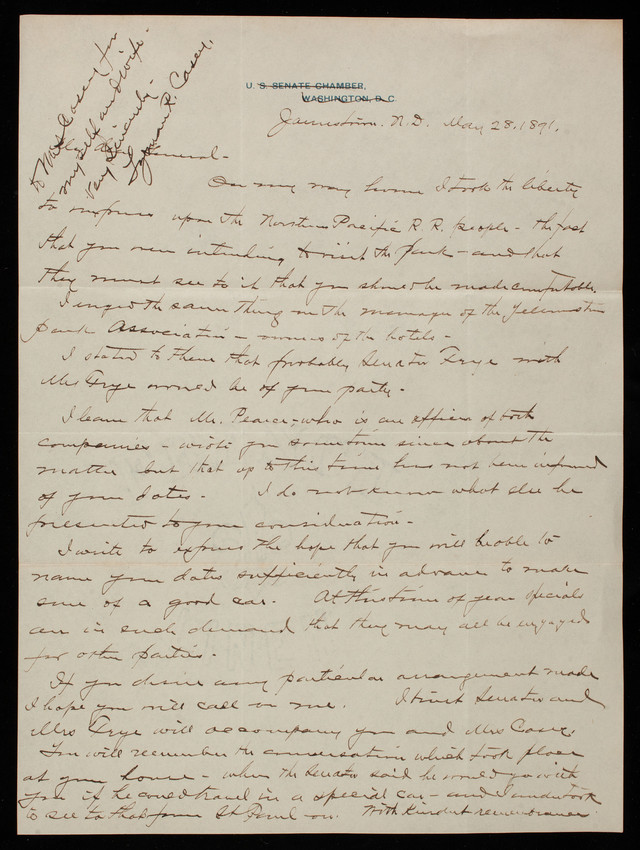 U. S. SENATE CHAMBER,
WASHINGTON, D. C.
Jamestown. N.D. May 28. 1891.
My dear General -
On my way home I took the liberty
to impress upon the Northern Pacific R. R. people - the fact
that you were intending to visit the Park - and that
they must see to it that you should be made comfortable.
I urged the same thing on the manager of the Yellowstone
Park Association - owners of the hotels -
I stated to them that probably Senator Frye with
Mrs Frye would be of your party.
I learn that Mr. Pearce, who is an officer of both
companies - wrote you sometime since about the
matter but that up to this time has not been informed
of your dates. I do not know what else he
presented to your consideration -
I write to express the hope that you will be able to
name your dates sufficiently in advance to make
sure of a good car. At this time of year specials
are in such demand that they may all be engaged
for other parties.
If you desire any particular arrangement made
I hope you will call on me. I trust Senator and
Mrs Frye will accompany you and Mrs Casey.
You will remember the conversation which took place
at your house - when the Senator said he would go with
you if he could travel in a special car - and I undertook
to see to that from St Paul on. With kindest remembrance
to Mrs Casey for
myself and wife -
Very sincerely -
Lyman R. Casey.